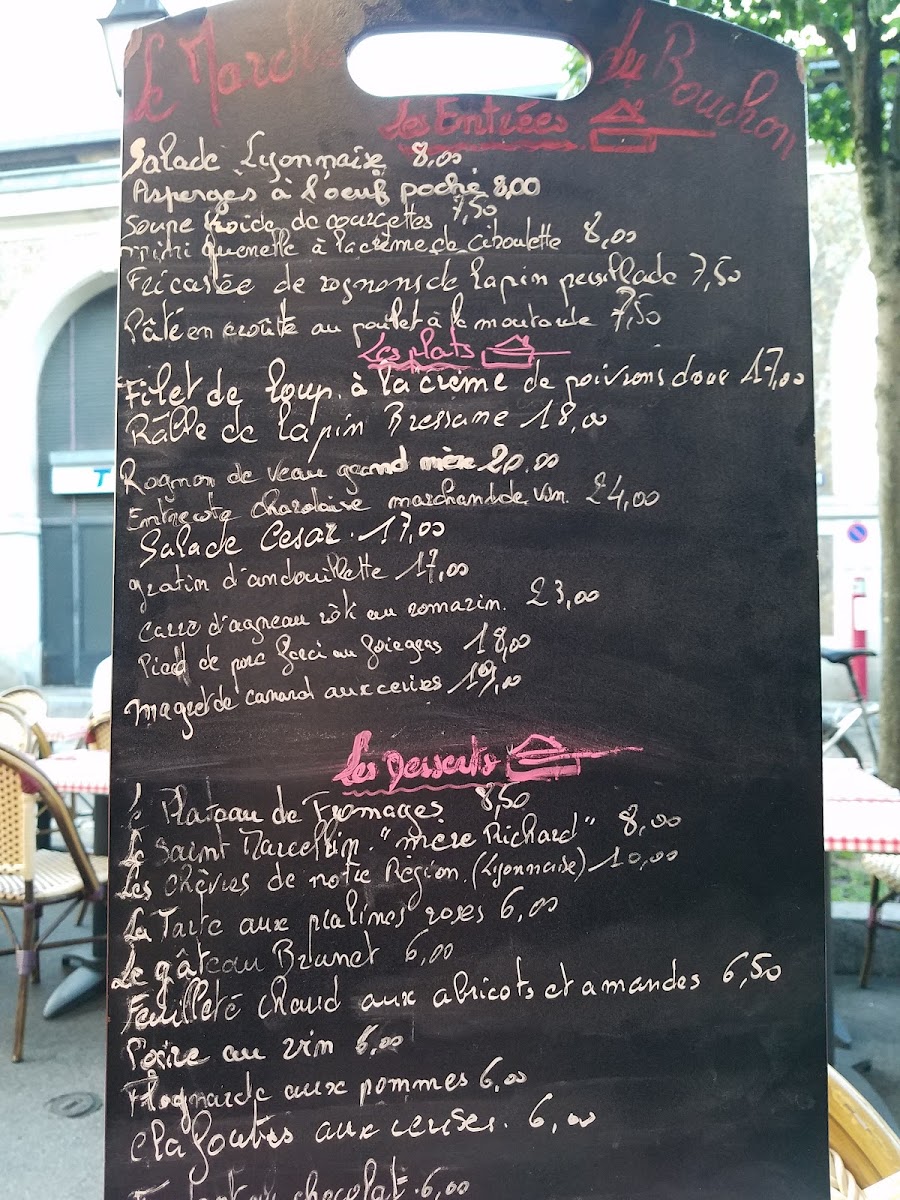 Le March du Bouchon
Les Entrées
Salade Lyonnaise 8,00
Asperges à l'oeuf poché 8,00
Soupe froide de courgettes 7,50
mini quenelle à la crème de ciboulette 8,00
Fricassée de rognons de lapin persillade 7,50
Pâté en croûte au poulet à la moutarde 7,50
Les plats
Filet de loup à la crème de poivrons doux 17,00
Râble de lapin Bressane 18,00
Rognon de veau grand mère 20,00
Entrecote charolaise marchand de vin. 24,00
Salade Cesar. 17,00
gratin d'andouillette 17,00
Carré d'agneau rôti au romarin. 23,00
Pied de porc farci au foie gras 18,00
magret de canard aux cerises 19,00
Les Desserts
Le Plateau de Fromages. 8,50
Le Saint Marcellin. "mère Richard" 8,00
Les Chèvres de notre Région. (Lyonnaise) 10,00
La Tarte aux pralines roses 6,00
Le gâteau Brunet 6,00
Feuilleté chaud aux abricots et amandes 6,50
Poire au vin 6,00
Flognarde aux pommes 6,00
Clafoutis aux cerises. 6,00
chocolat. 6,00